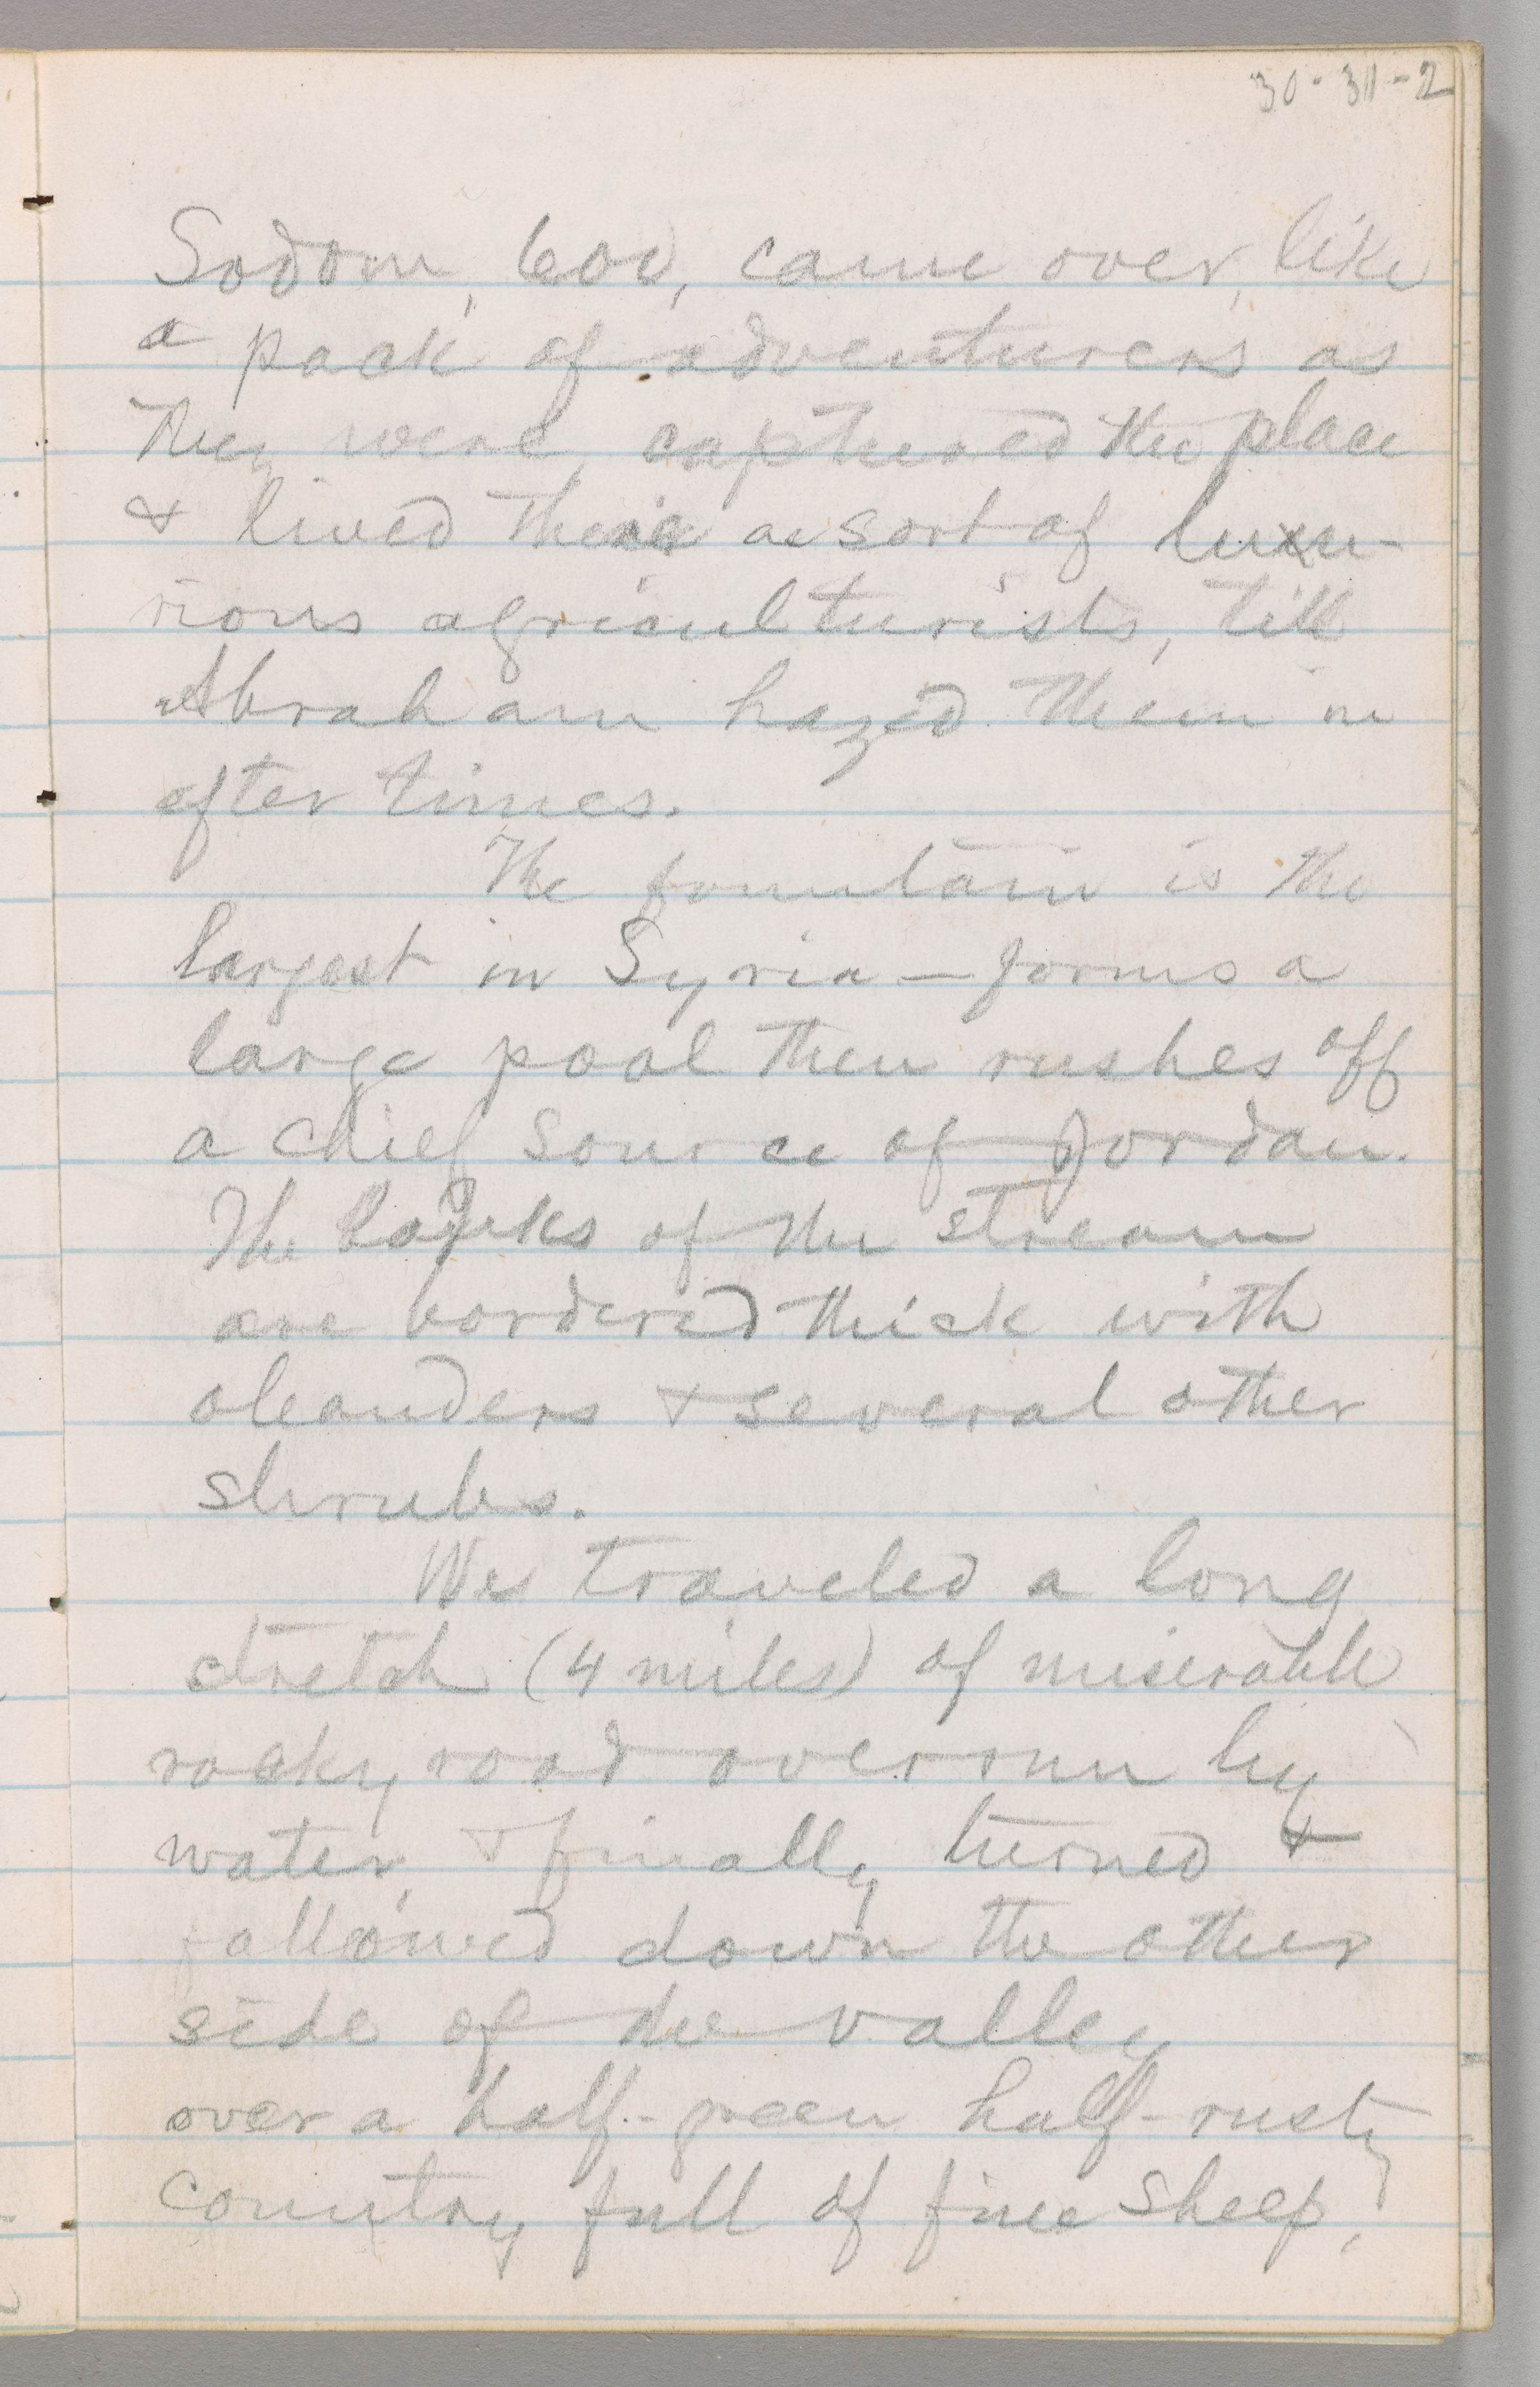 30-31-2
Sodom, 600, came over, like
a pack of adventurers as
they were, captured the place
& lived there a sort of luxu-
rious agriculturists, till
Abraham hazed them in
after times.
The fountain is the
largest in Syria — forms a
large pool then rushes off
a chief source of Jordan.
The banks of the stream
are bordered thick with
oleanders & several other
shrubs.
We traveled a long
stretch (4 miles) of miserable
rocky road overrun by
water, & finally turned &
followed down the other
side of the valley
over a half-green half-rusty
country full of fine sheep,